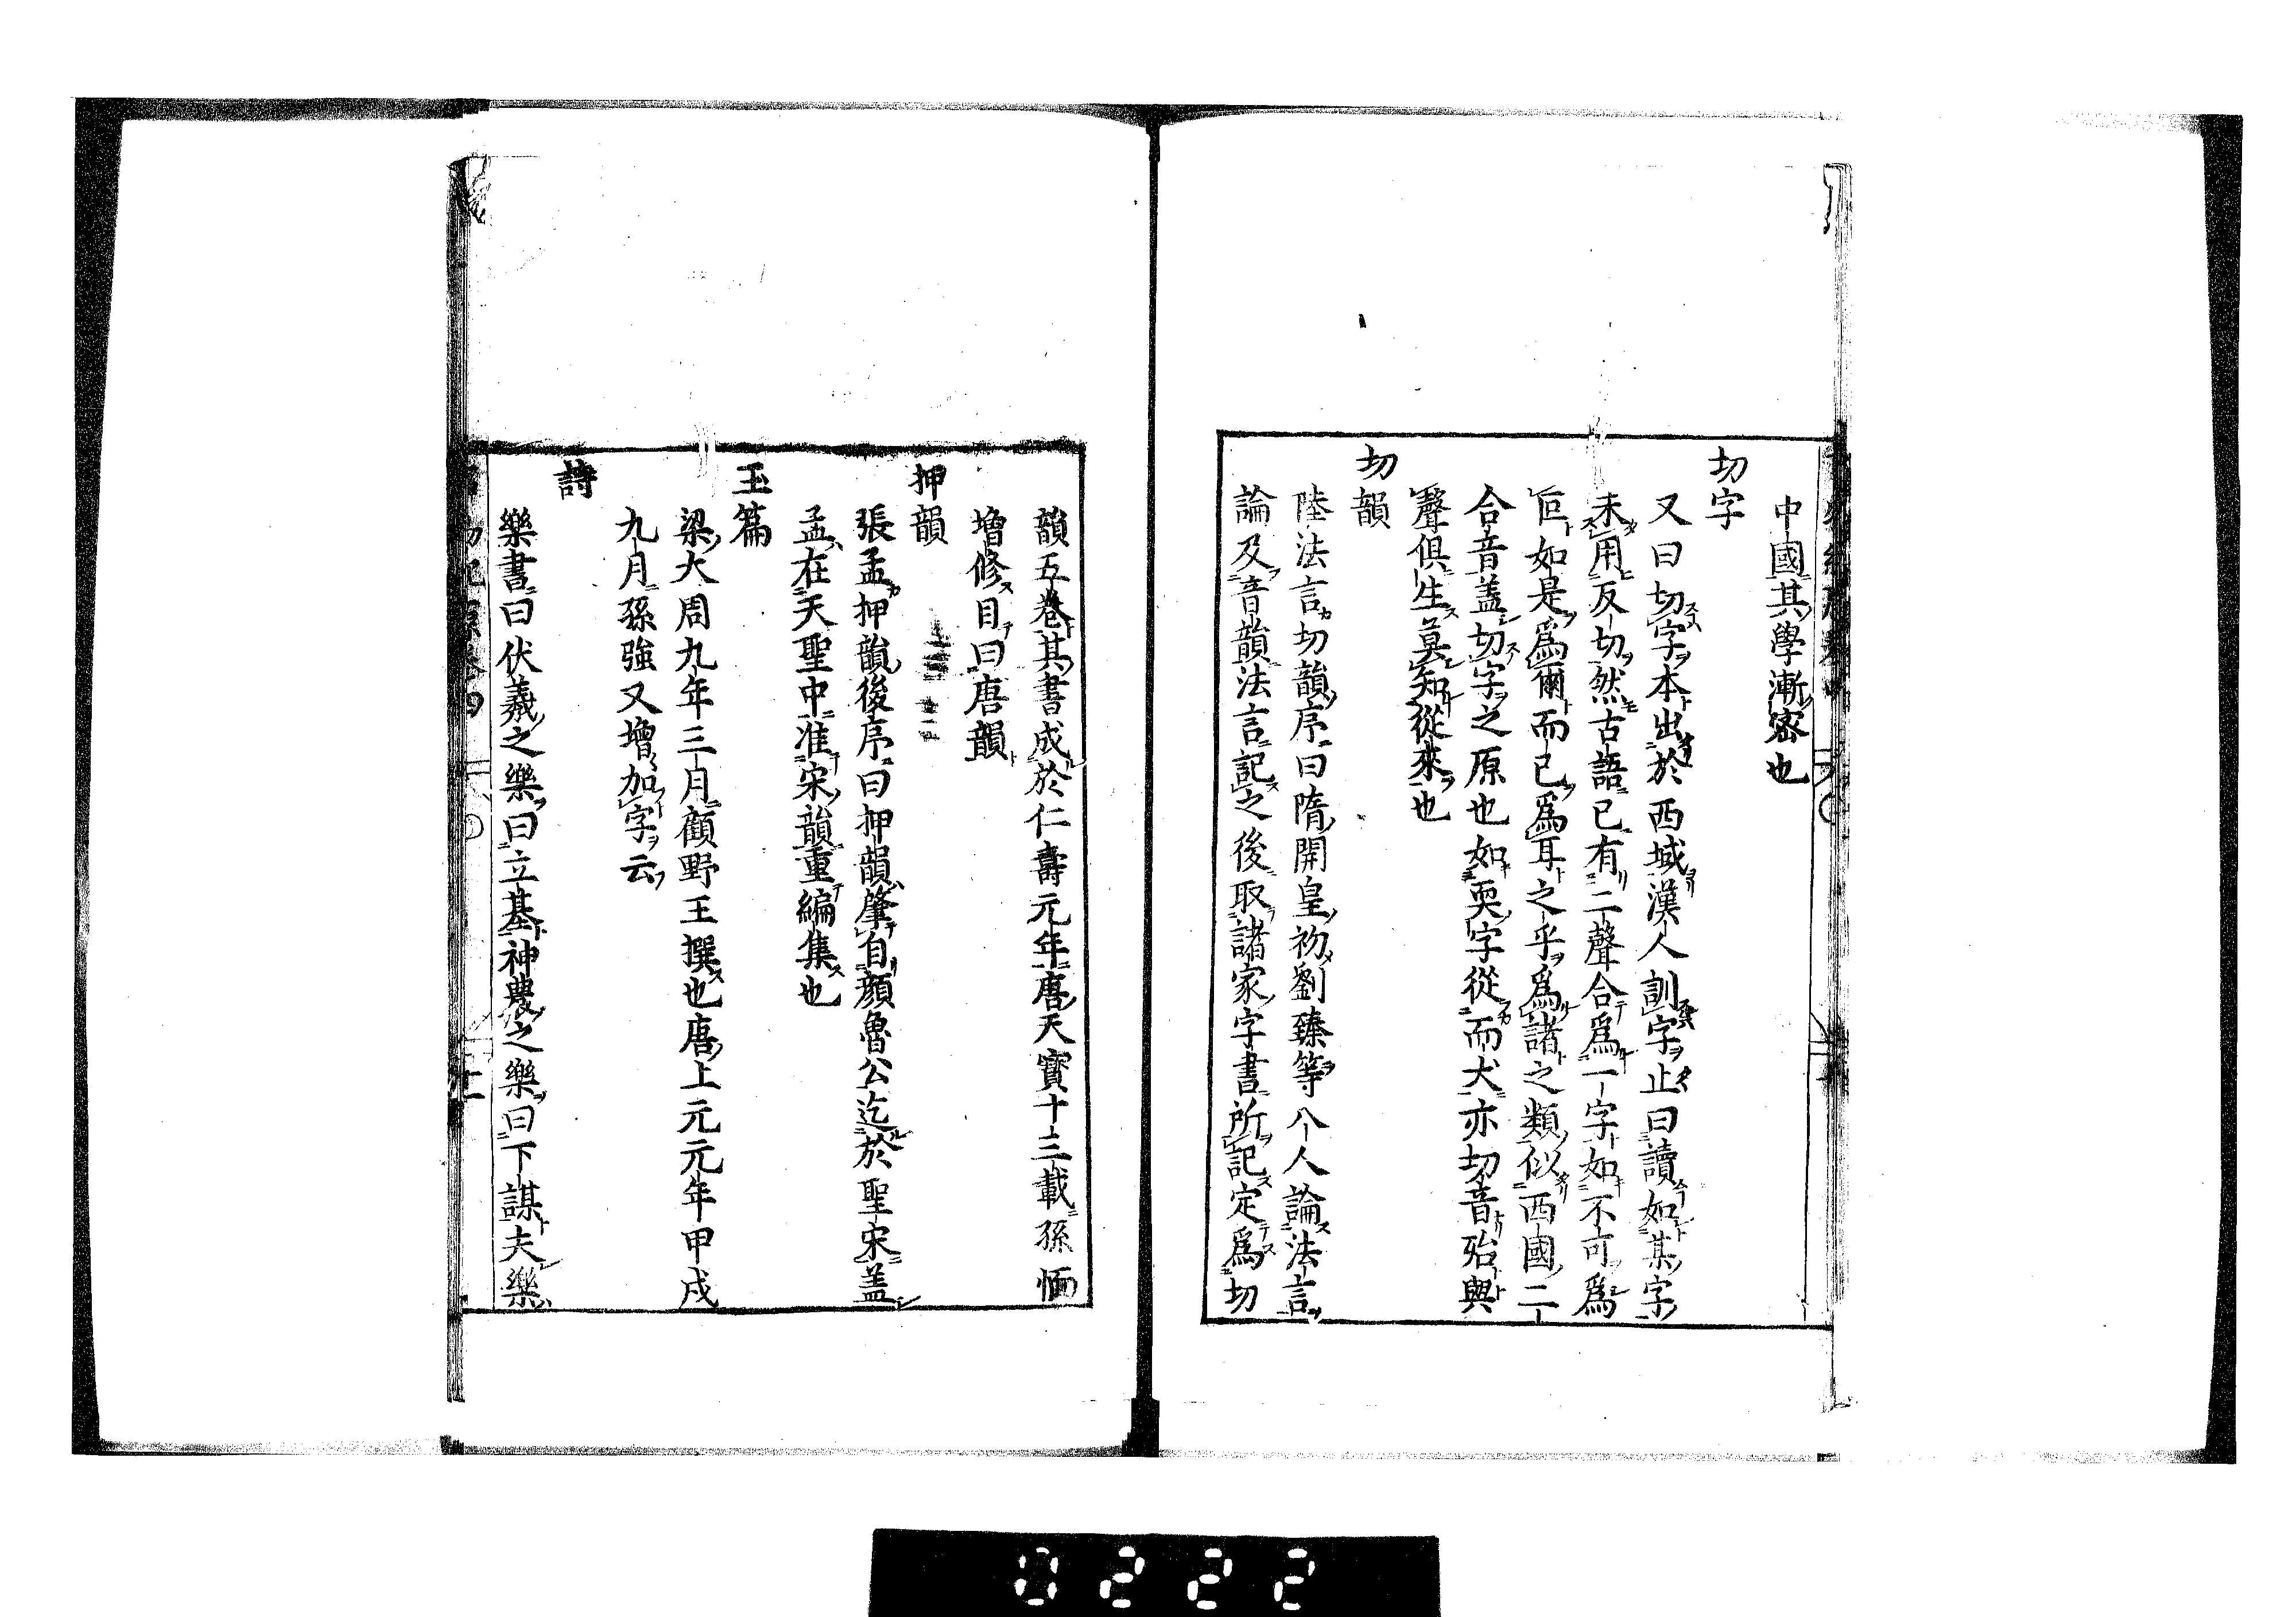 中國其學漸密也
切字
又曰切字本出於西域漢人訓字止曰讀如某字
未用反切然古語已有二聲合爲一字如不可爲
叵如是爲爾而已爲耳之乎爲諸之類似西國二
合音盖切字之原也如耎字從而犬亦切音殆與
聲俱生莫知從來也
切韻
陸法言切韻序曰隋開皇初劉臻等八人論法言
論及音韻法言記之後取諸家字書所記定爲切
韻五卷其書成於仁壽元年唐天寳十三載孫愐
增修目曰唐韻
押韻
張孟押韻後序曰押韻肇自顔魯公迄於聖宋盖
孟在天聖中准宋韻重編集也
玉篇
梁大周九年三月顧野王撰也唐上元元年甲戌
九月孫強又增加字云
詩
樂書曰伏羲之樂曰立基神農之樂曰下謀夫樂
0222